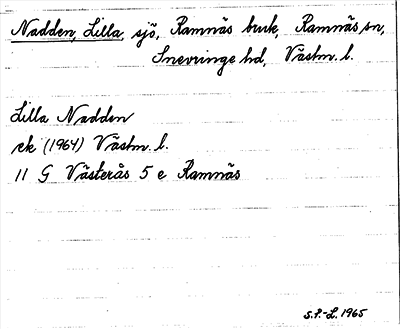 Nadden, Lilla, sjö, Ramnäs bruk, Ramnäs sn,
Snevringe hd, Västm. l.
Lilla Nadden
ek (1964) Västm. l.
11 G Västerås 5 e Ramnäs
S.P.-L. 1965